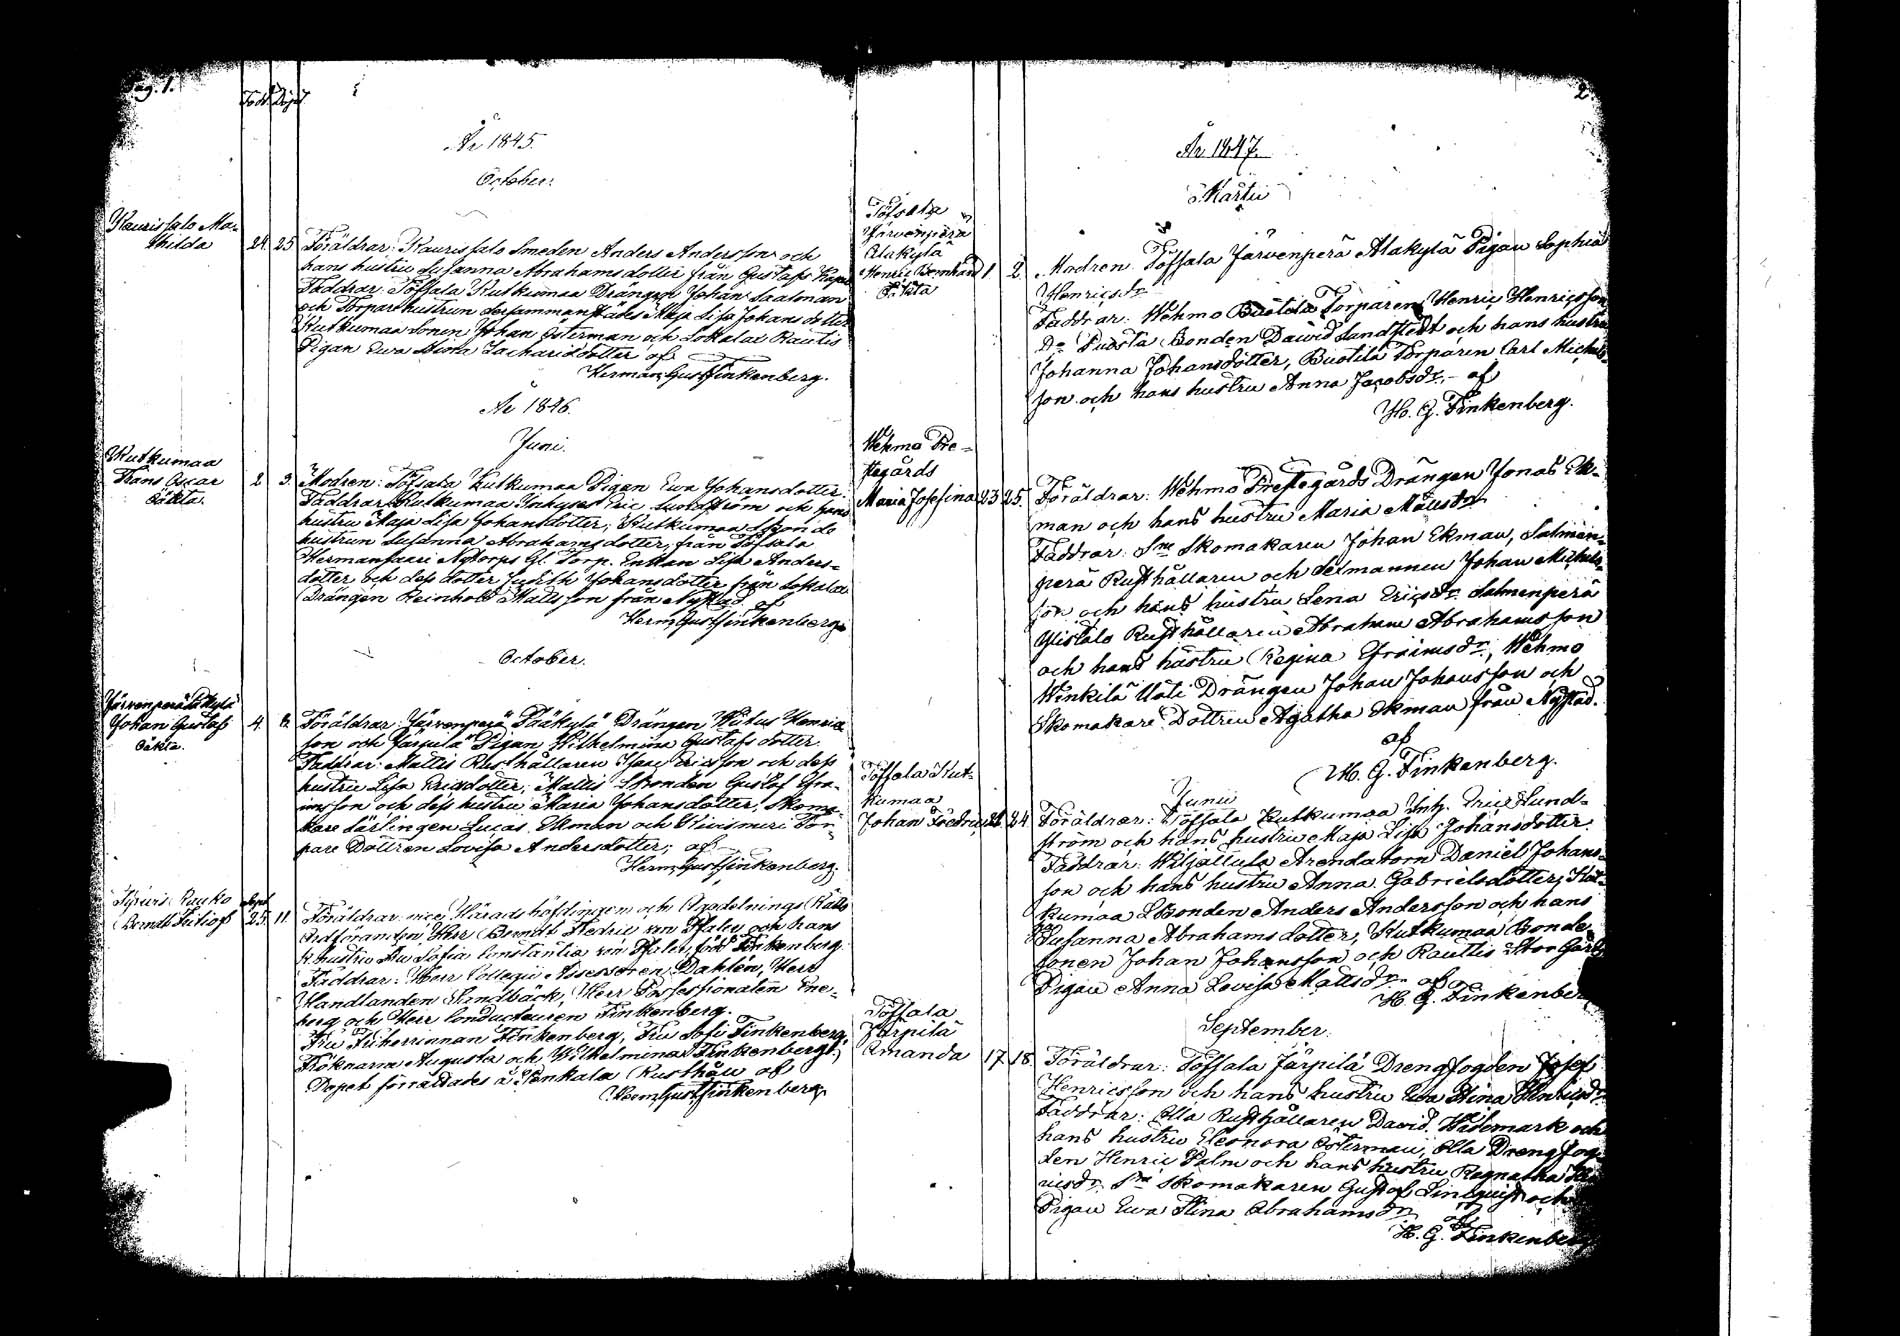 Pag. 1.
Född. Döpt.
År 1845.
October.
Kaurissalo Ma-
thilda
24. 25. Föräldrar: Kaurissalo Smeden Anders Andersson och
hans hustru Susanna Abrahamsdotter från Gustafs
Faddrar: Töfsala Kutkumaa Drängen Johan Saalman
och Torpare hustrun dersammanstädes Maja Lisa Johansdotter
Kutkumaa Sonen Johan Österman och Lokalax Rautis
Pigan Ewa Stina Zacharidotter af
Herman Gust Finkenberg.
År 1846.
Juni.
Kutkumaa
Frans Oscar
Oäkta.
2 3. Modren: Töfsala Kutkumaa Pigan Ewa Johansdotter.
Faddrar: Kutkumaa Inhyses Eric Lundström och hans
hustru Maja Lisa Johansdotter, Kutkumaa
hustrun Susanna Abrahamsdotter, från Töfsala
Hermansaari Nytorps Gl. Torp. Enkan Lisa Anders-
dotter och dess dotter Judith Johansdotter från
Drängen Reinhold Mattsson från Nystad af
Herm. Gust Finkenberg.
October.
Järvenperä Pääkylä
Johan Gustaf
Oäkta.
4. 6. Föräldrar: Järvenperä Pääkylä Drängen
son och Pigan Wilhelmina Gustafsdotter.
Faddrar: Mattis Rusthållaren Isaac Ericsson och dess
hustru Lisa Ericsdotter, Mattis Bonden Gustof Efra-
imsson och dess hustru Maria Johansdotter, Skoma-
kare Lärlingen Lucas Ekman och Tor-
pare Dottren Lovisa Andersdotter; af
Herm. Gust Finkenberg.
Pauko
Berndt Fritiof
Sept.
25. 11. Föräldrar: Häradshöfdingen och Afdelnings Rätts
Ordföranden Herr Berndt Fredric von Pfaler och hans
K. hustru Fru Sofia Constantia von Pfaler född Finkenberg.
Faddrar: Herr Collegii Assessoren Dahlén, Herr
Handlanden Sundbäck, Herr Possessionaten Ene-
berg och Herr Conducteuren Finkenberg.
Fru Finkenberg, Fru Sofi Finkenberg,
Fröknarna Augusta och Wilhelmina Finkenberg;
Dopet förrättades å Pankala Rusthåll af
Herm. Gust Finkenberg.
2
År 1847.
Martii
Töfsala
Järvenperä
Alakylä
Henric Bernhard
Oäkta
1 2. Modren: Töfsala Järvenperä Alakylä Pigan Sophia
Henricsdr
Faddrar: Wehmo Buotila Torparen Henric Henricsson
Do Puosta Bonden David Sandstedt och hans hustru
Johanna Johansdotter, Buotila Torparen Carl Michels-
son och hans hustru Anna Jacobsdr. af
H. G. Finkenberg.
Wehmo Pre-
stegårds
Maria Josefina
23 25. Föräldrar: Wehmo Prestegårds Drängen Jonas Ek-
man och hans hustru Maria Mattsdr
Faddrar: Sne Skomakaren Johan Ekman, Salmen-
perä Rusthållaren och Sexmannen Johan Michels-
son och hans hustru Lena Ericsdr Salmenperä
Ylistalo Rusthållaren Abraham Abrahamsson
och hans hustru Regina Efraimsdr, Wehmo
Winkilä Uoti Drängen Johan Johansson och
Skomakare Dottren Agatha Ekman från Nystad.
af
H. G. Finkenberg.
Junii
Töfsala Kut-
kumaa
Johan Fredric
22 24. Föräldrar: Töfsala Kutkumaa Inh. Eric Lund-
ström och hans hustru Maja Lisa Johansdotter.
Faddrar: Arendatorn Daniel Johans-
son och hans hustru Anna Gabrielsdotter, Kut-
kumaa Bonden Anders Andersson och hans
Susanna Abrahamsdotter, Kutkumaa Bonde
sonen Johan Johansson och Rautis Storgårds
Pigan Anna Lovisa Mattsdr. af
H. G. Finkenberg
September.
Töfsala
Järpilä
Amanda
17. 18. Föräldrar: Töfsala Järpilä Drengfogden Josef
Henricsson och hans hustru Ewa Stina Henricsdr
Faddrar: Olla Rusthållaren David Widemark och
hans hustru Eleonora Österman, Olla Drengfog-
den Henric Palm och hans hustru Regnatha
ricsdr. Sne Skomakaren Gustof Lindquist och
Pigan Ewa Stina Abrahamsdr
af
H. G. Finkenberg